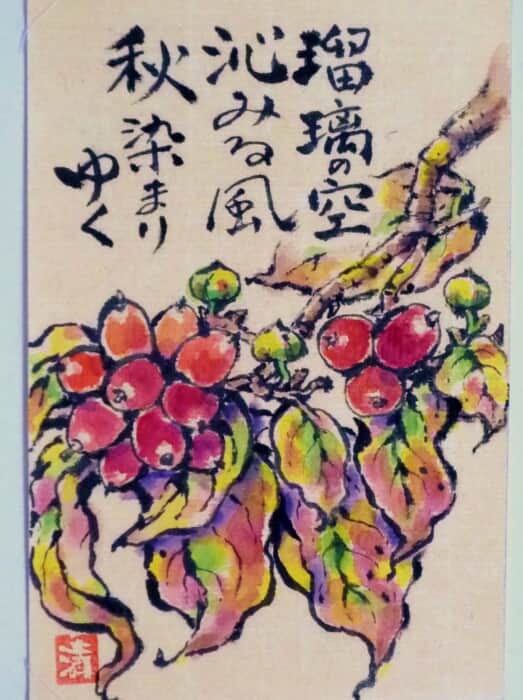 瑠璃の空
沁みる風
秋染まり
ゆく
清